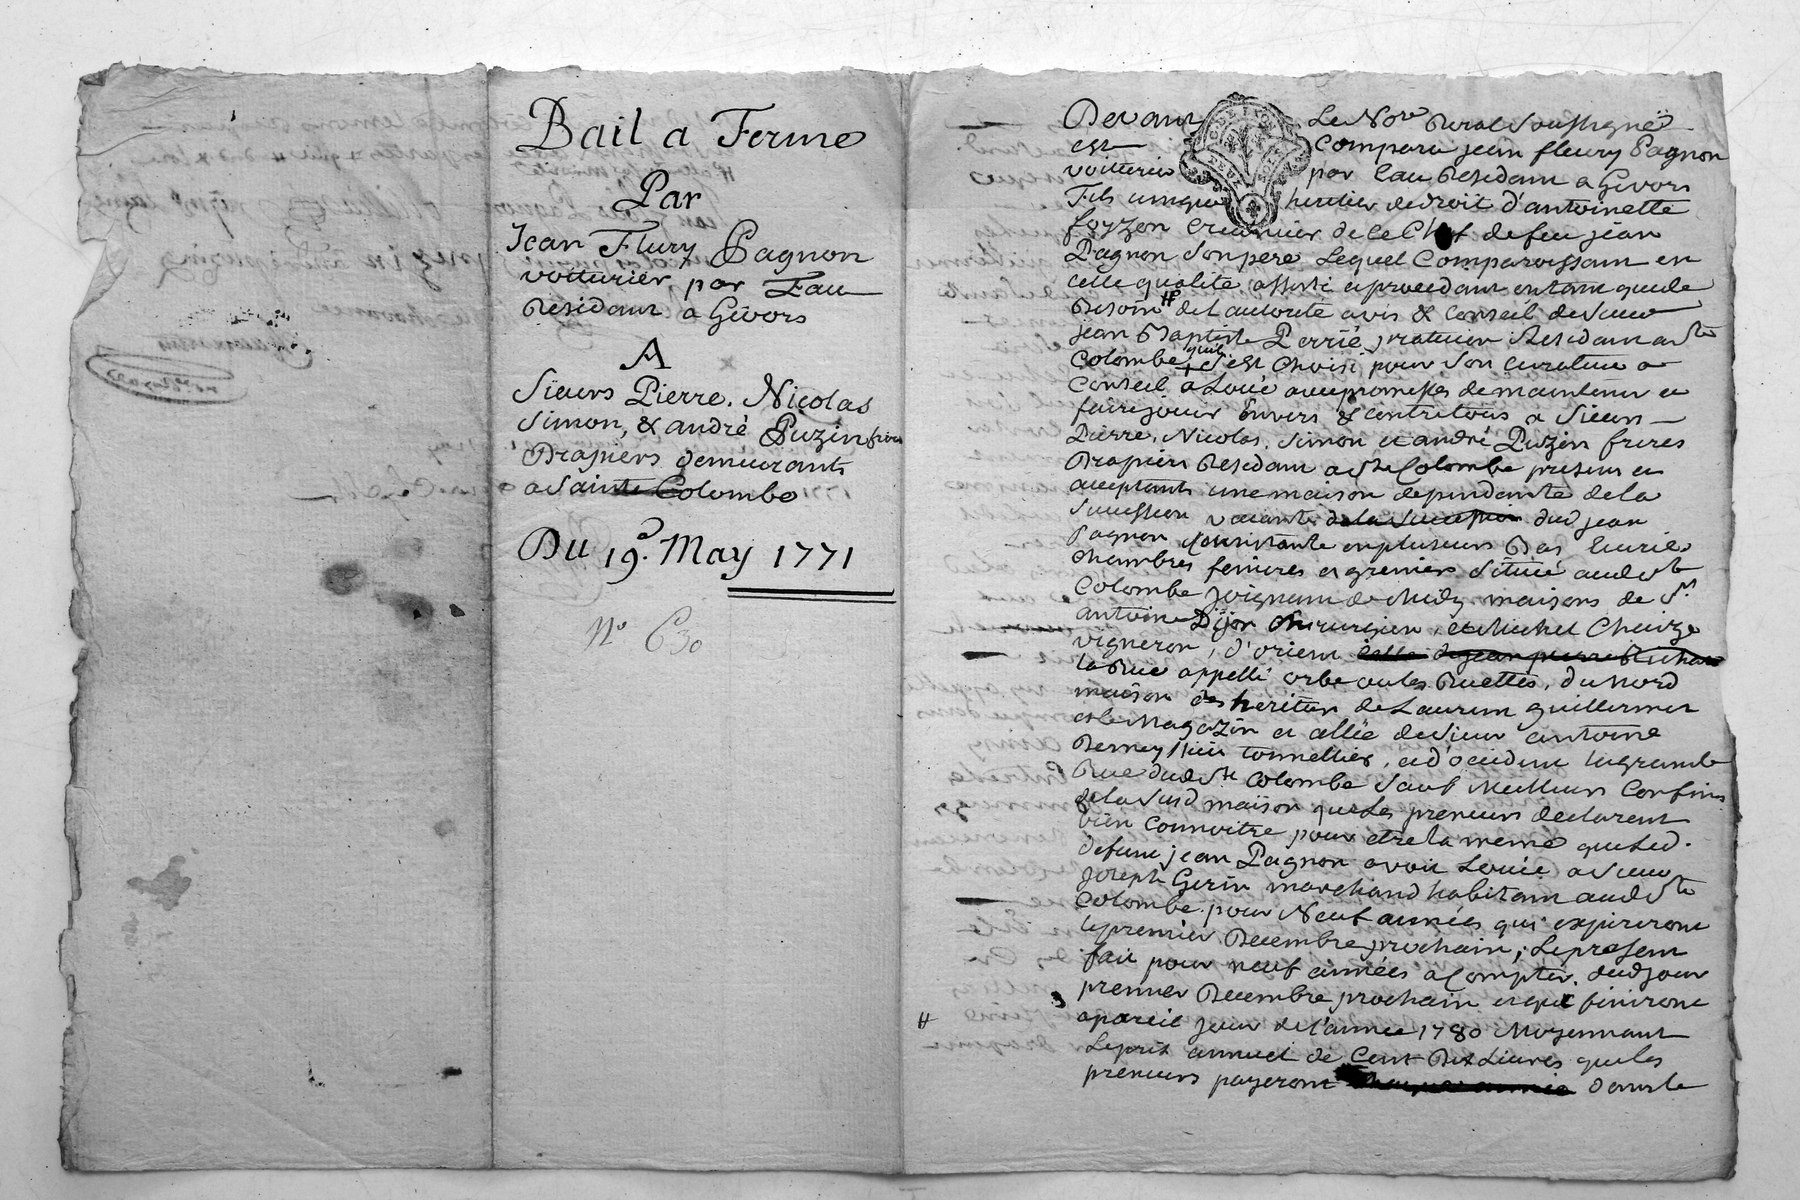 Bail a Ferme
Par
Jean Flury Pagnon
voiturier par Eau
Residant a Givors
A
Sieurs Pierre, Nicolas
Simon, & andré Puzin freres
Drapiers demeurants
a Sainte Colombe
Du 19e. May 1771
No 630
Devant Le Nore Royal Soussigné
est Comparu jean fleury Pagnon
voiturier par Eau Residant a Givors
Fils unique heritier de droit d'antoinette
foyzon Creanciere de le Chef de feu jean
Pagnon Son pere Lequel Comparoissant en
cette qualité assisté et procedant en tant que de
Besoin # de L'autorité avis & Conseil de Sieur
jean Baptiste Perrié praticien Residant a Ste
Colombe quil s'est Choisi pour Son Curateur et
Conseil a Loué avec promesses de maintenir et
faire jouir Envers & contre tous a Sieurs
Pierre, Nicolas, Simon et andré Puzin freres
Drapiers Residant a Ste Colombe present et
acceptants une maison dependante de la
Succession vacante de la Succession dud jean
Pagnon Consistante en plusieurs Bas Ecurie
Chambres fenieres et greniers Située aud Ste
Colombe joignant de Midy maisons de Sr.
antoine Dijon Chirurgien, et Michel
vigneron, d'orient
la Rue appellé orbe ou les Ruettes, du Nord
maison des heritiers de Laurent guillermet
et le Magazin et allée de Sieur antoine
tonnellier, et d'occident la grande
Rue dud Ste Colombe Sauf Meilleurs Confins
de la Susd maison que Les preneurs declarent
bien Connoitre pour etre la meme que Led.
defunt jean Pagnon avoit Louée a Sieur
Joseph Gerin marchand habitant aud Ste
Colombe pour Neuf années qui expireront
le premier Decembre prochain; Le present
fait pour neuf années a Compter dud jour
premier Decembre prochain et qui finiront
a pareil jour de l'année 1780 Moyennant
Le prix annuel de Cent Dix Livres que les
preneurs payeront chaque année dans le
#